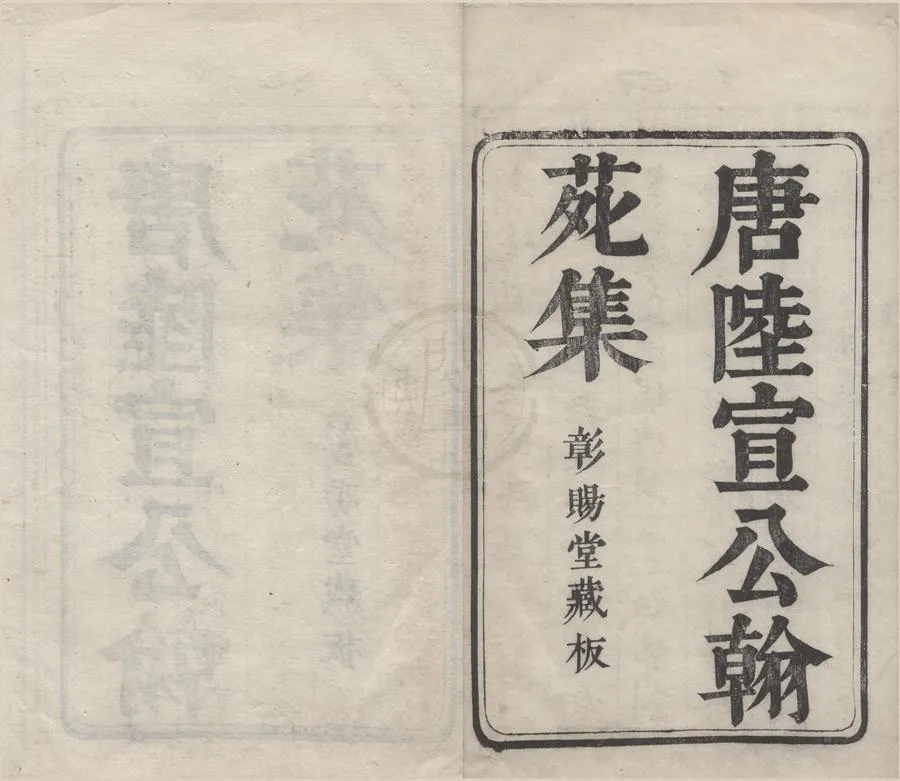 唐陸宣公翰
苑集
彰賜堂藏板